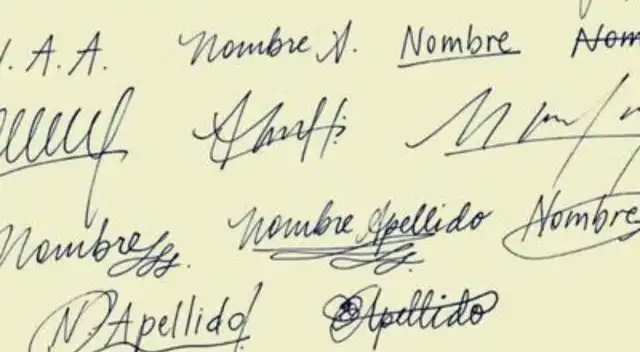 A. A. Nombre A. Nombre Nom
Nombre Nombre Apellido Nombre
N. Apellido Apellido